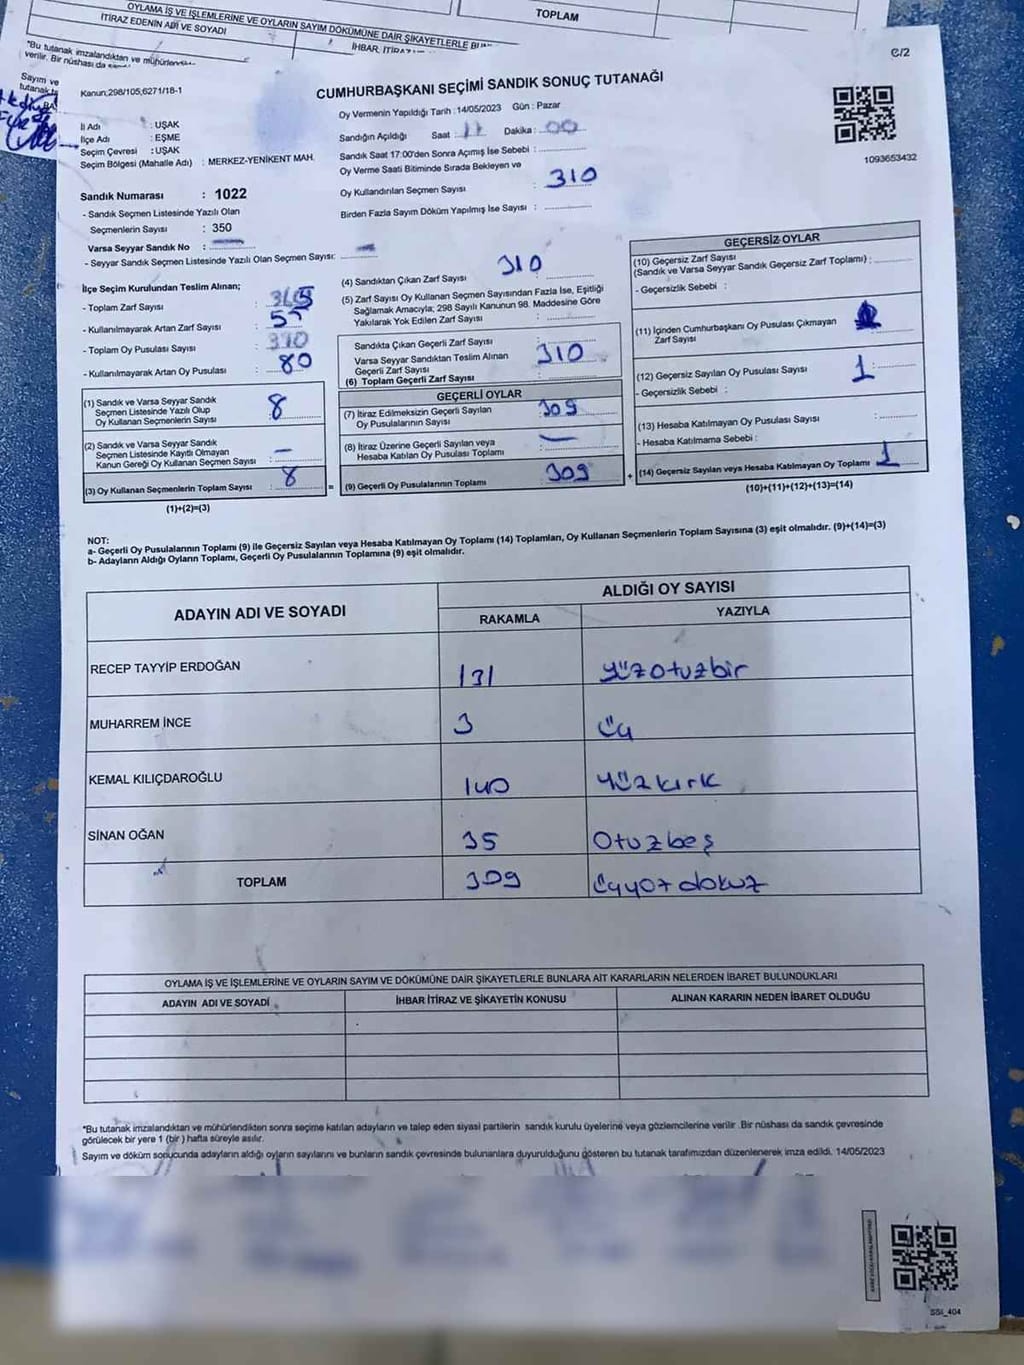 OYLAMA İŞ VE İŞLEMLERİNE VE OYLARIN SAYIM DÖKÜMÜNE DAİR ŞİKAYETLERLE
İTİRAZ EDENİN ADI VE SOYADI
TOPLAM
*Bu tutanak imzalandıktan ve
verilir. Bir nüshası da
Sayım ve
C/2
Kanun;298/105,6271/18-1
CUMHURBAŞKANI SEÇİMİ SANDIK SONUÇ TUTANAĞI
Oy Vermenin Yapıldığı Tarih : 14/05/2023 Gün : Pazar
İl Adı : UŞAK
İlçe Adı : EŞME
Seçim Çevresi : UŞAK
Seçim Bölgesi (Mahalle Adı) : MERKEZ-YENİKENT MAH.
Sandığın Açıldığı Saat : 17 Dakika : 00
Sandık Saat 17:00'den Sonra Açımış İse Sebebi :
Oy Verme Saati Bitiminde Sırada Bekleyen ve
Oy Kullandırılan Seçmen Sayısı : 310
Birden Fazla Sayım Döküm Yapılmış İse Sayısı :
1093653432
Sandık Numarası : 1022
- Sandık Seçmen Listesinde Yazılı Olan
Seçmenlerin Sayısı : 350
Varsa Seyyar Sandık No :
- Seyyar Sandık Seçmen Listesinde Yazılı Olan Seçmen Sayısı:
İlçe Seçim Kurulundan Teslim Alınan;
- Toplam Zarf Sayısı : 365
- Kullanılmayarak Artan Zarf Sayısı : 55
- Toplam Oy Pusulası Sayısı :
- Kullanılmayarak Artan Oy Pusulası : 80
(1) Sandık ve Varsa Seyyar Sandık
Seçmen Listesinde Yazılı Olup
Oy Kullanan Seçmenlerin Sayısı : 8
(2) Sandık ve Varsa Seyyar Sandık
Seçmen Listesinde Kayıtlı Olmayan
Kanun Gereği Oy Kullanan Seçmen Sayısı : –
(3) Oy Kullanan Seçmenlerin Toplam Sayısı : 8
(1)+(2)=(3)
(4) Sandıktan Çıkan Zarf Sayısı : 310
(5) Zarf Sayısı Oy Kullanan Seçmen Sayısından Fazla İse, Eşitliği
Sağlamak Amacıyla; 298 Sayılı Kanunun 98. Maddesine Göre
Yakılarak Yok Edilen Zarf Sayısı :
Sandıkta Çıkan Geçerli Zarf Sayısı :
Varsa Seyyar Sandıktan Teslim Alınan
Geçerli Zarf Sayısı : 310
(6) Toplam Geçerli Zarf Sayısı :
GEÇERLİ OYLAR
(7) İtiraz Edilmeksizin Geçerli Sayılan
Oy Pusulalarının Sayısı : 309
(8) İtiraz Üzerine Geçerli Sayılan veya
Hesaba Katılan Oy Pusulası Toplamı : –
(9) Geçerli Oy Pusulalarının Toplamı : 309
GEÇERSİZ OYLAR
(10) Geçersiz Zarf Sayısı
(Sandık ve Varsa Seyyar Sandık Geçersiz Zarf Toplamı) :
- Geçersizlik Sebebi :
(11) İçinden Cumhurbaşkanı Oy Pusulası Çıkmayan
Zarf Sayısı :
(12) Geçersiz Sayılan Oy Pusulası Sayısı : 1
- Geçersizlik Sebebi :
(13) Hesaba Katılmayan Oy Pusulası Sayısı :
- Hesaba Katılmama Sebebi :
(14) Geçersiz Sayılan veya Hesaba Katılmayan Oy Toplamı : 1
(10)+(11)+(12)+(13)=(14)
NOT:
a- Geçerli Oy Pusulalarının Toplamı (9) ile Geçersiz Sayılan veya Hesaba Katılmayan Oy Toplamı (14) Toplamları, Oy Kullanan Seçmenlerin Toplam Sayısına (3) eşit olmalıdır. (9)+(14)=(3)
b- Adayların Aldığı Oyların Toplamı, Geçerli Oy Pusulalarının Toplamına (9) eşit olmalıdır.
ADAYIN ADI VE SOYADI
ALDIĞI OY SAYISI
RAKAMLA YAZIYLA
RECEP TAYYİP ERDOĞAN 131 yüzotuzbir
MUHARREM İNCE 3 üç
KEMAL KILIÇDAROĞLU 140 yüzkırk
SİNAN OĞAN 35 Otuzbeş
TOPLAM 309 üçyüz dokuz
OYLAMA İŞ VE İŞLEMLERİNE VE OYLARIN SAYIM VE DÖKÜMÜNE DAİR ŞİKAYETLERLE BUNLARA AİT KARARLARIN NELERDEN İBARET BULUNDUKLARI
ADAYIN ADI VE SOYADI İHBAR İTİRAZ VE ŞİKAYETİN KONUSU ALINAN KARARIN NEDEN İBARET OLDUĞU
*Bu tutanak imzalandıktan ve mühürlendikten sonra seçime katılan adayların ve talep eden siyasi partilerin sandık kurulu üyelerine veya gözlemcilerine verilir .Bir nüshası da sandık çevresinde
görülecek bir yere 1 (bir ) hafta süreyle asılır.
Sayım ve döküm sonucunda adayların aldığı oyların sayılarını ve bunların sandık çevresinde bulunanlara duyurulduğunu gösteren bu tutanak tarafımızdan düzenlenerek imza edildi. 14/05/2023
SSI_404